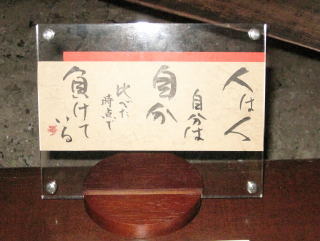 人は人
自分は
自分
比べた
時点で
負けて
いる